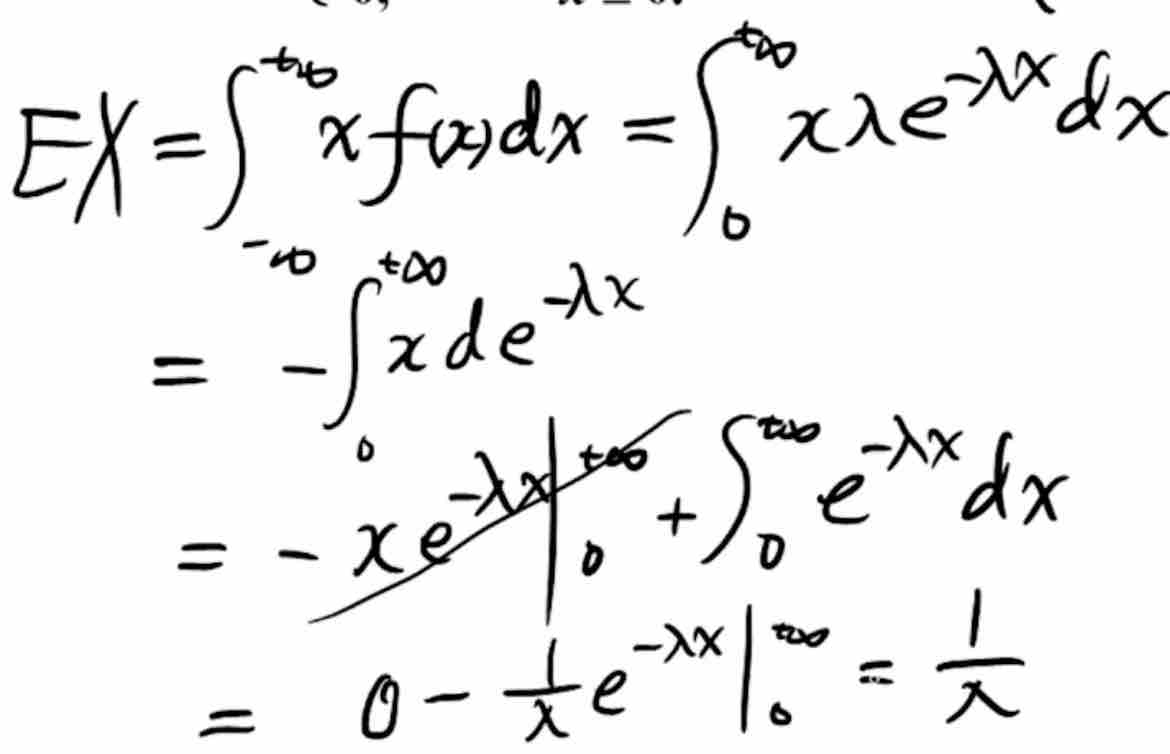 EX = ∫_{-∞}^{+∞} x f(x) dx = ∫_0^{+∞} xλe^{-λx} dx
= -∫_0^{+∞} x d e^{-λx}
= -xe^{-λx}|_0^{+∞} + ∫_0^{+∞} e^{-λx} dx
= 0 - \frac{1}{λ} e^{-λx}|_0^{+∞} = \frac{1}{λ}